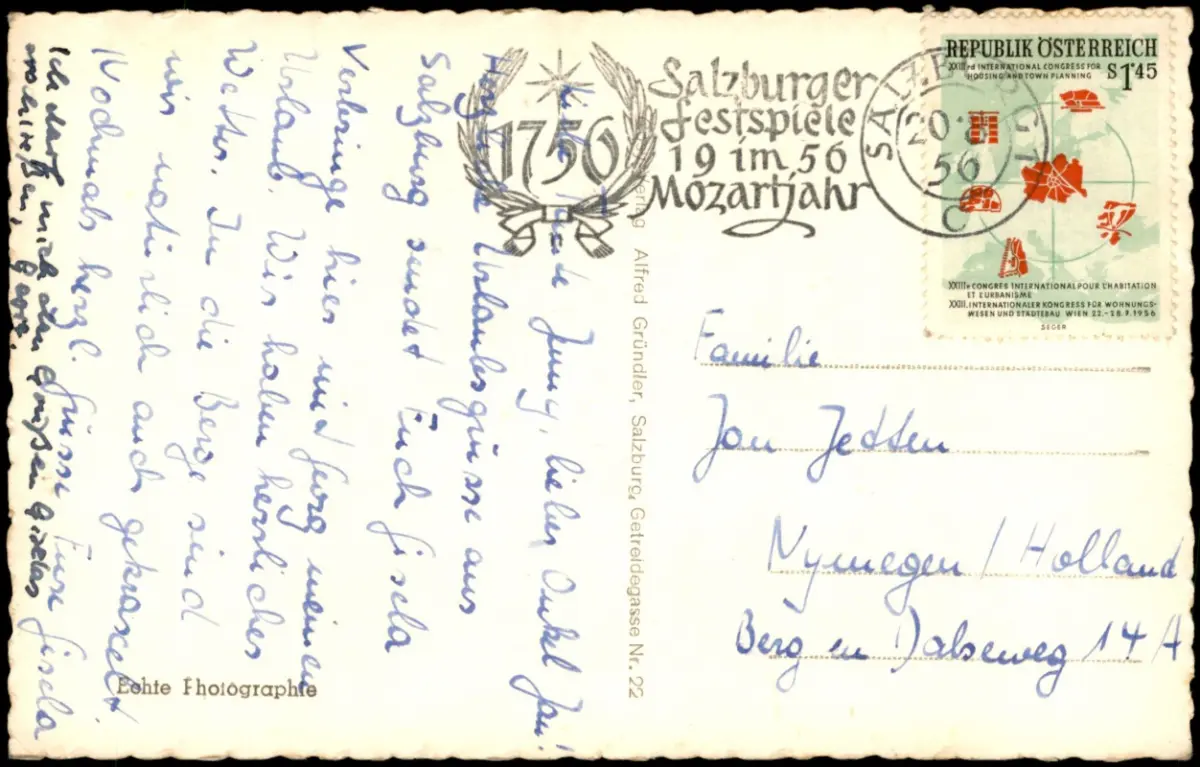 1756
Salzburger
festspiele
19 im 56
Mozartjahr
SALZBURG 1
20·8
56
C
REPUBLIK ÖSTERREICH
XXIIIrd INTERNATIONAL CONGRESS FOR
HOUSING AND TOWN PLANNING
S 1·45
XXIIIe CONGRÈS INTERNATIONAL POUR L'HABITATION
ET L'URBANISME
XXIII. INTERNATIONALER KONGRESS FÜR WOHNUNGS-
WESEN UND STÄDTEBAU WIEN 22.-28.7.1956
SEGER
Liebe Tante Jenny, lieber Onkel Jan!
Herzliche Urlaubsgrüsse aus
Salzburg sendet Euch Gisela
Verbringe hier mit Georg meinen
Urlaub. Wir haben herrliches
Wetter. In die Berge sind
wir natürlich auch gekraxelt
Nochmals herzl. Grüsse Eure Gisela
Ich darf mich den Grüßen Giselas
anschließen, Georg.
Verlag Alfred Gründler, Salzburg, Getreidegasse Nr. 22
Echte Photographie
Familie
Jan
Nymegen / Holland
Berg en Dalseweg 14 A